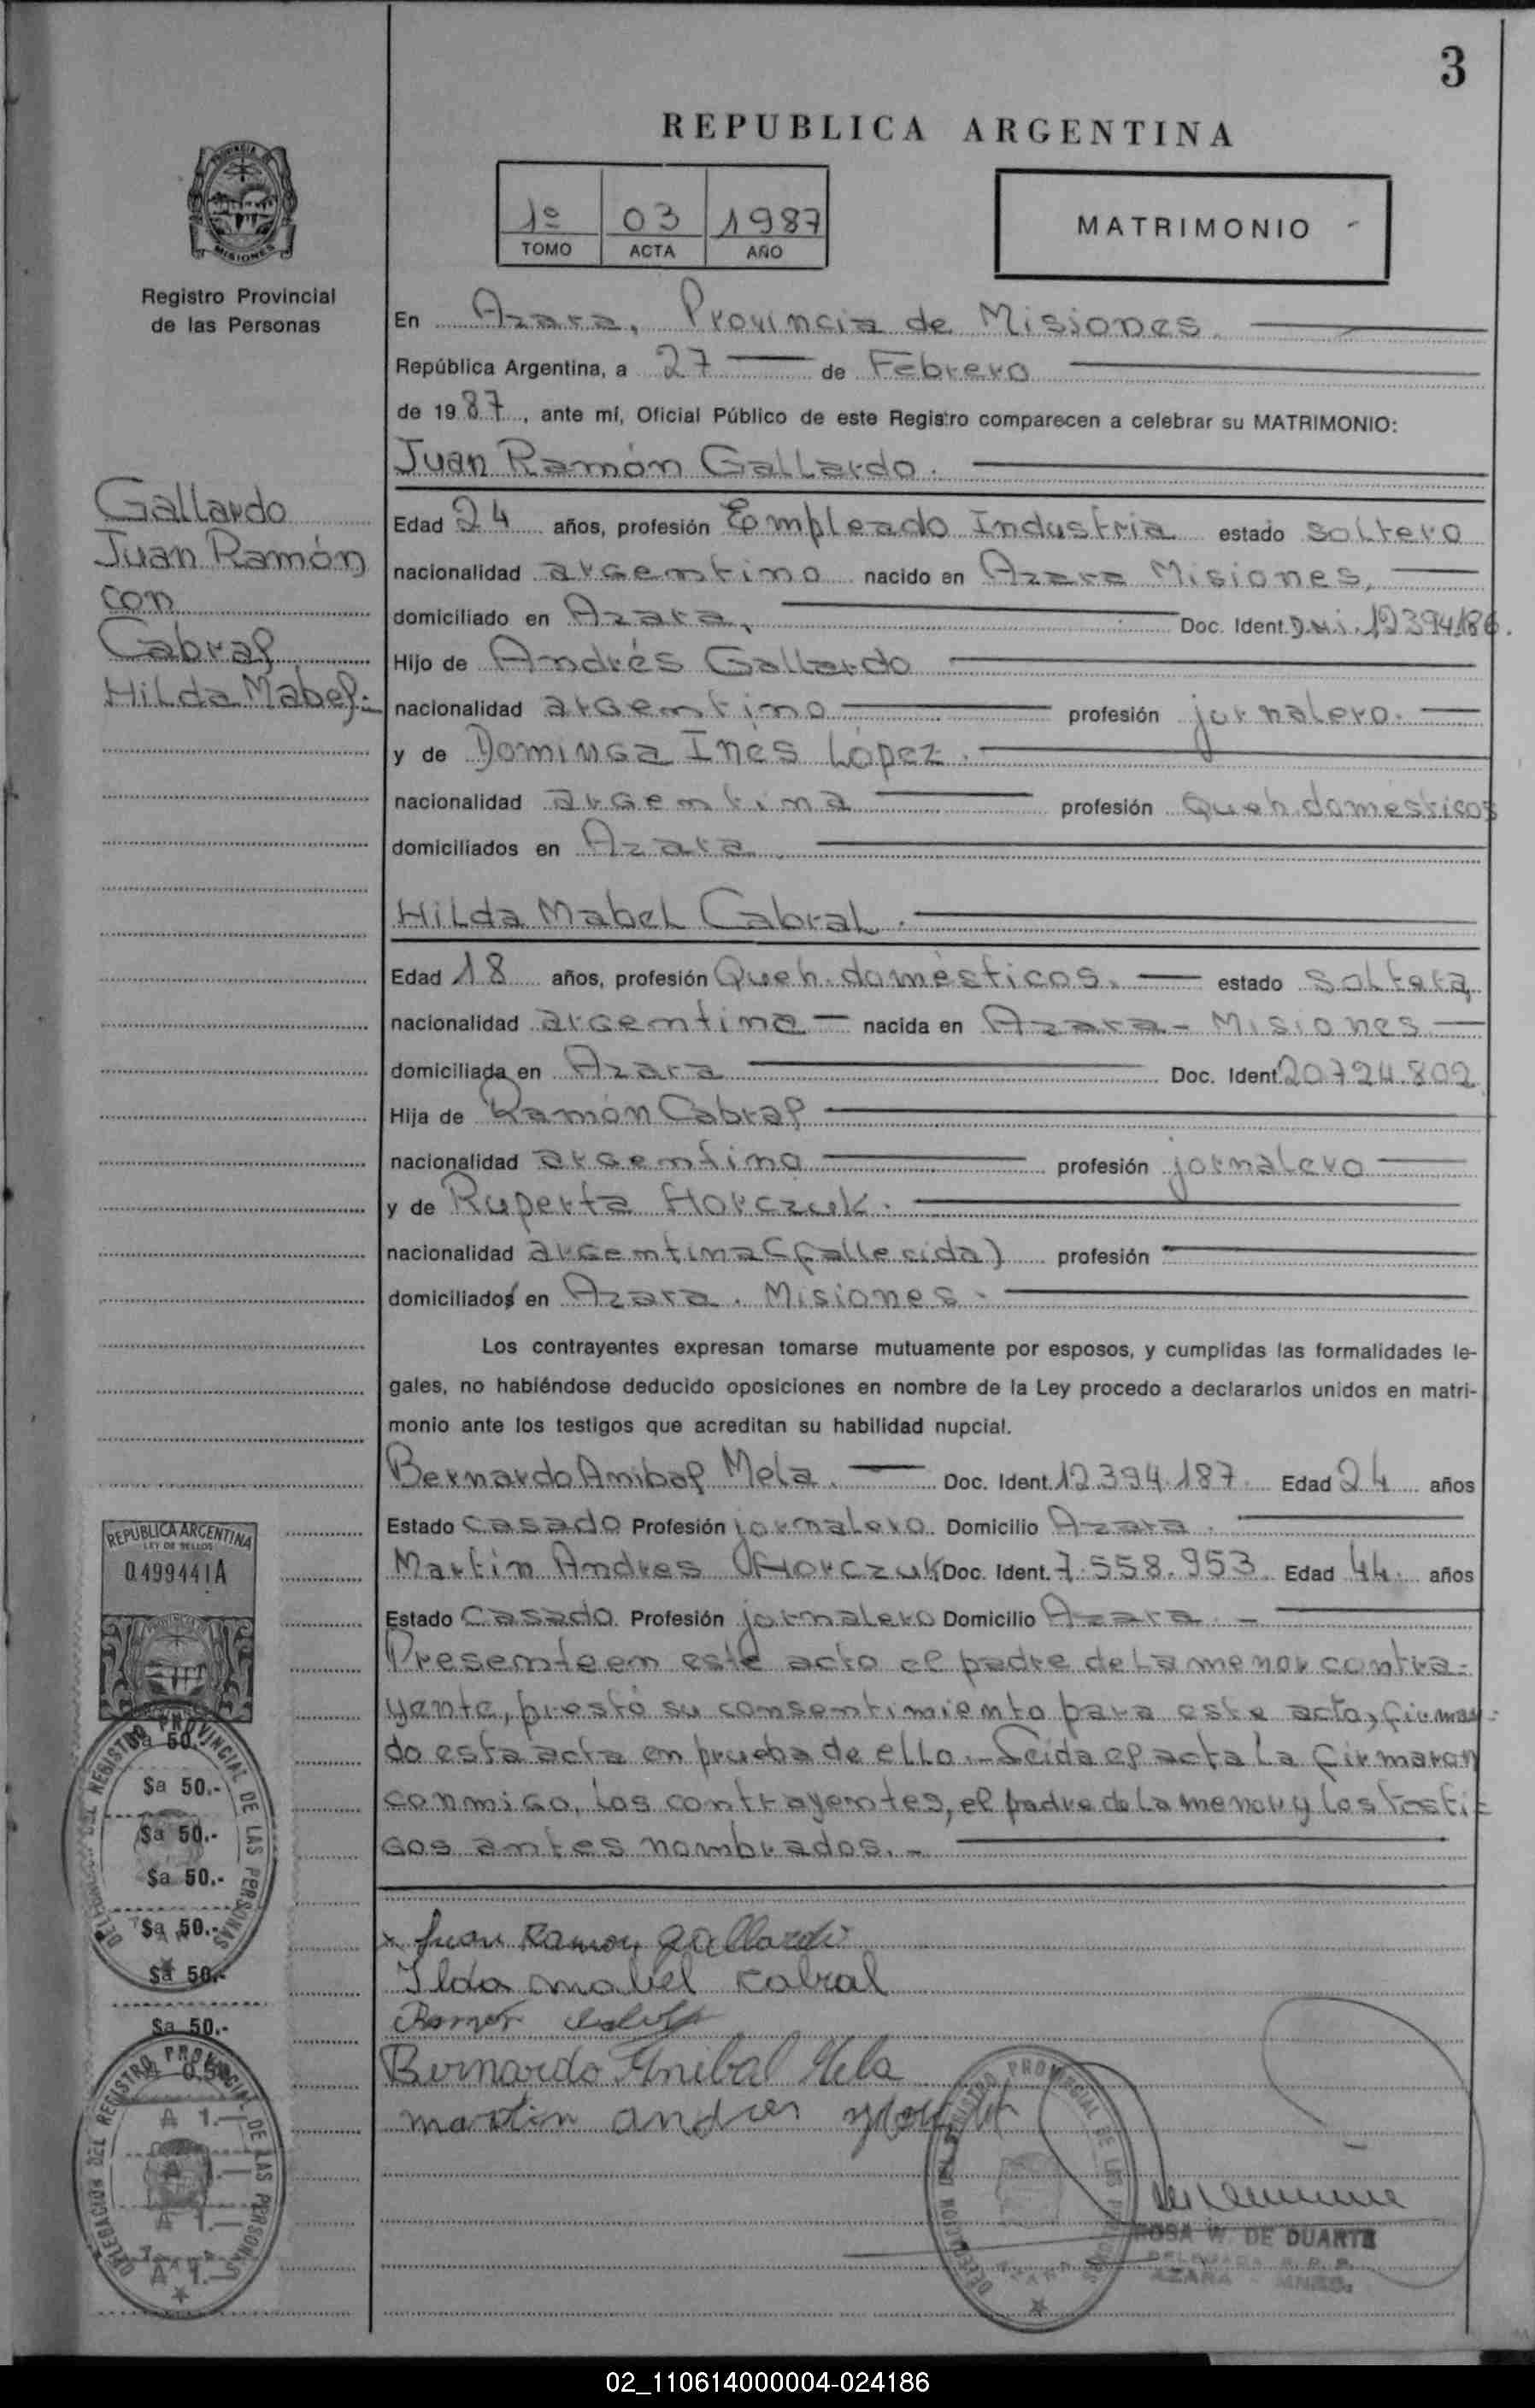 3
REPUBLICA ARGENTINA
1º 03 1987
TOMO ACTA AÑO
MATRIMONIO
PROVINCIA DE
MISIONES
Registro Provincial
de las Personas
En Azara, Provincia de Misiones.
República Argentina, a 27 de Febrero
de 1987, ante mí, Oficial Público de este Registro comparecen a celebrar su MATRIMONIO:
Juan Ramón Gallardo.
Gallardo
Juan Ramón
con
Cabral
Hilda Mabel.-
Edad 24 años, profesión Empleado Industria estado soltero
nacionalidad argentino nacido en Azara Misiones,
domiciliado en Azara, Doc. Ident. D.N.i. 12394186.
Hijo de Andrés Gallardo
nacionalidad argentino profesión jornalero.
y de Dominga Inés López.
nacionalidad argentina profesión Queh. domésticos
domiciliados en Azara.
Hilda Mabel Cabral.
Edad 18 años, profesión Queh. domésticos. estado soltera
nacionalidad argentina nacida en Azara - Misiones
domiciliada en Azara Doc. Ident. 20.724.802
Hija de Ramón Cabral
nacionalidad argentino profesión jornalero
y de Ruperta Horczuk.
nacionalidad argentina (fallecida) profesión
domiciliados en Azara. Misiones.
Los contrayentes expresan tomarse mutuamente por esposos, y cumplidas las formalidades le-
gales, no habiéndose deducido oposiciones en nombre de la Ley procedo a declararlos unidos en matri-
monio ante los testigos que acreditan su habilidad nupcial.
Bernardo Anibal Mela. Doc. Ident. 12.394.187. Edad 24 años
Estado casado Profesión jornalero. Domicilio Azara.
Martin Andres Horczuk Doc. Ident. 7.558.953. Edad 44. años
Estado Casado. Profesión jornalero Domicilio Azara. -
Presente en este acto el padre de la menor contra-
yente, prestó su consentimiento para este acto, firman-
do esta acta en prueba de ello.- Leida el acta la firmaron
conmigo, los contrayentes, el padre de la menor y los testi-
gos antes nombrados. -
x Juan Ramon Gallardo
Ilda mabel cabral
Ramon
Bernardo Anibal Mela
martin andres
REPUBLICA ARGENTINA
LEY DE SELLOS
0.499441A
$a 50.-
$a 50.-
$a 50.-
$a 50.-
$a 50.-
$a 50.-
$a 50.-
A 1.-
A 1.-
A 1.-
A 1.-
DELEGACION DEL REGISTRO PROVINCIAL DE LAS PERSONAS
DELEGACION DEL REGISTRO PROVINCIAL DE LAS PERSONAS
DELEGACION DEL REGISTRO PROVINCIAL DE LAS PERSONAS
AZARA
ROSA W. DE DUARTE
DELEGADA R. P. P.
AZARA - MNES.
02_110614000004-024186